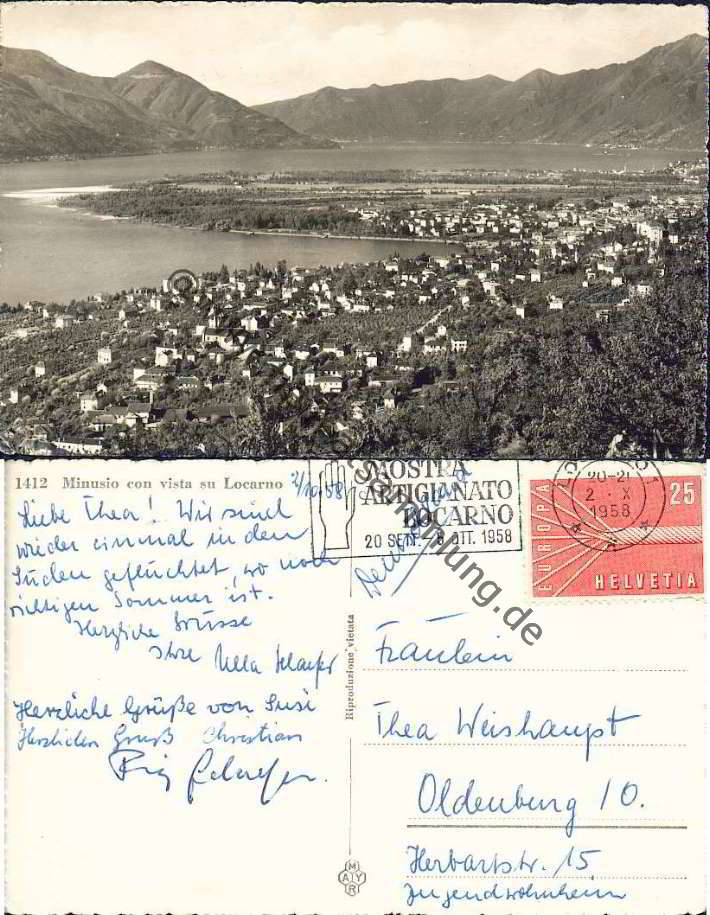 1412 Minusio con vista su Locarno
2/10.58.
Liebe Thea! Wir sind
wieder einmal in den
Süden geflüchtet, wo noch
richtigen Sommer ist.
Herzliche Grüsse
Ihre Ulla Schaefer
Herzliche Grüße von Susi
Herzlichen Gruß Christian
Schaefer.
MOSTRA
ARTIGIANATO
LOCARNO
20 SETT.-8 OTT. 1958
20-21
2.X
1958
EUROPA
25
HELVETIA
Riproduzione vietata
Fräulein
Thea Weishaupt
Oldenburg i O.
Herbartstr. 15
Jugendwohnheim
MAYR